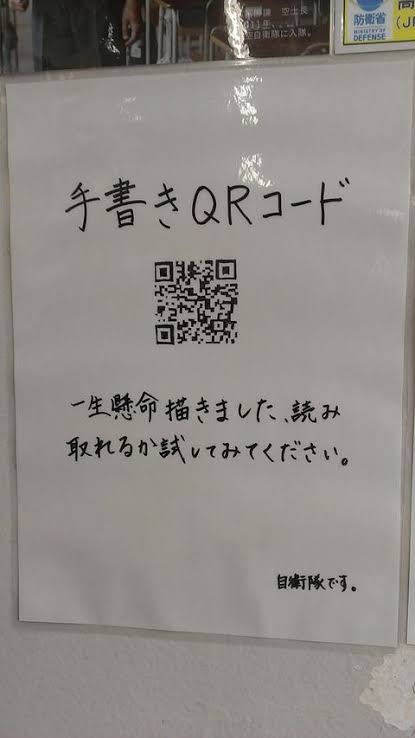 空士長
自衛隊に入隊。
防衛省
MINISTRY OF
DEFENSE
手書きQRコード
一生懸命描きました、読み
取れるか試してみてください。
自衛隊です。